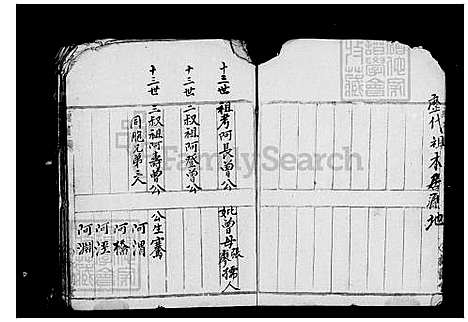 歷代祖本房應地
十三世 祖考阿長曾公
妣曾母張廖孺人
十三世 二叔祖阿登曾公
十三世 三叔祖阿壽曾公
同胞兄弟三人
公生騫
阿渭
阿橋
阿涇
阿淵
FamilySearch